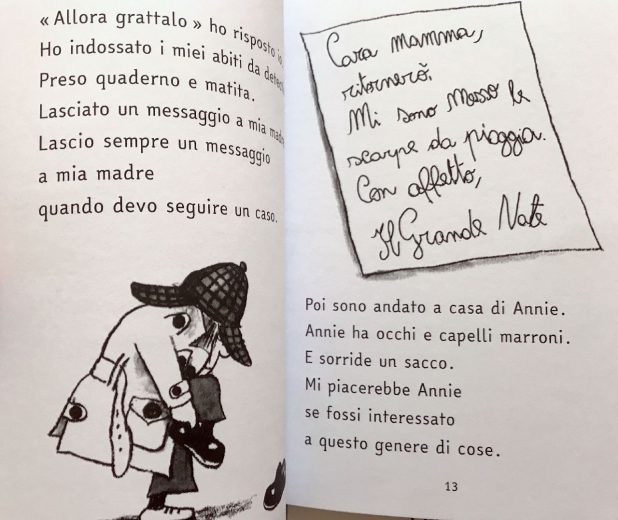 « Allora grattalo » ho risposto io.
Ho indossato i miei abiti da
Preso quaderno e matita.
Lasciato un messaggio a mia madre
Lascio sempre un messaggio
a mia madre
quando devo seguire un caso.
Cara mamma,
ritornerò.
Mi sono messo le
scarpe da pioggia.
Con affetto,
Il Grande Nate
Poi sono andato a casa di Annie.
Annie ha occhi e capelli marroni.
E sorride un sacco.
Mi piacerebbe Annie
se fossi interessato
a questo genere di cose.
13